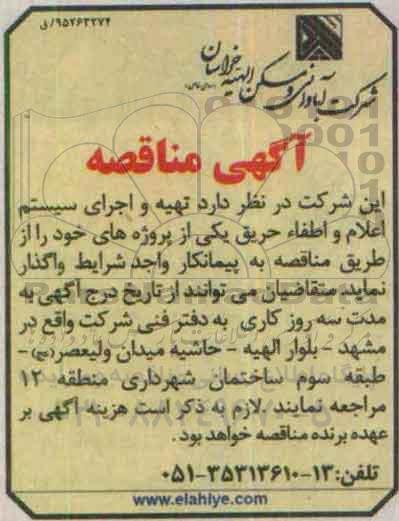 ۹۵۲۶۳۲۷۴/ق
شرکت آبادانی و مسکن الهیه خراسان
آگهی مناقصه
این شرکت در نظر دارد تهیه و اجرای سیستم
اعلام و اطفاء حریق یکی از پروژه های خود را از
طریق مناقصه به پیمانکار واجد شرایط واگذار
نماید. متقاضیان می توانند از تاریخ درج آگهی به
مدت سه روز کاری به دفتر فنی شرکت واقع در
مشهد - بلوار الهیه - حاشیه میدان ولیعصر(عج)-
طبقه سوم ساختمان شهرداری منطقه ۱۲
مراجعه نمایند. لازم به ذکر است هزینه آگهی بر
عهده برنده مناقصه خواهد بود.
تلفن: ۱۳-۳۵۳۱۳۶۱۰-۰۵۱
www.elahiye.com